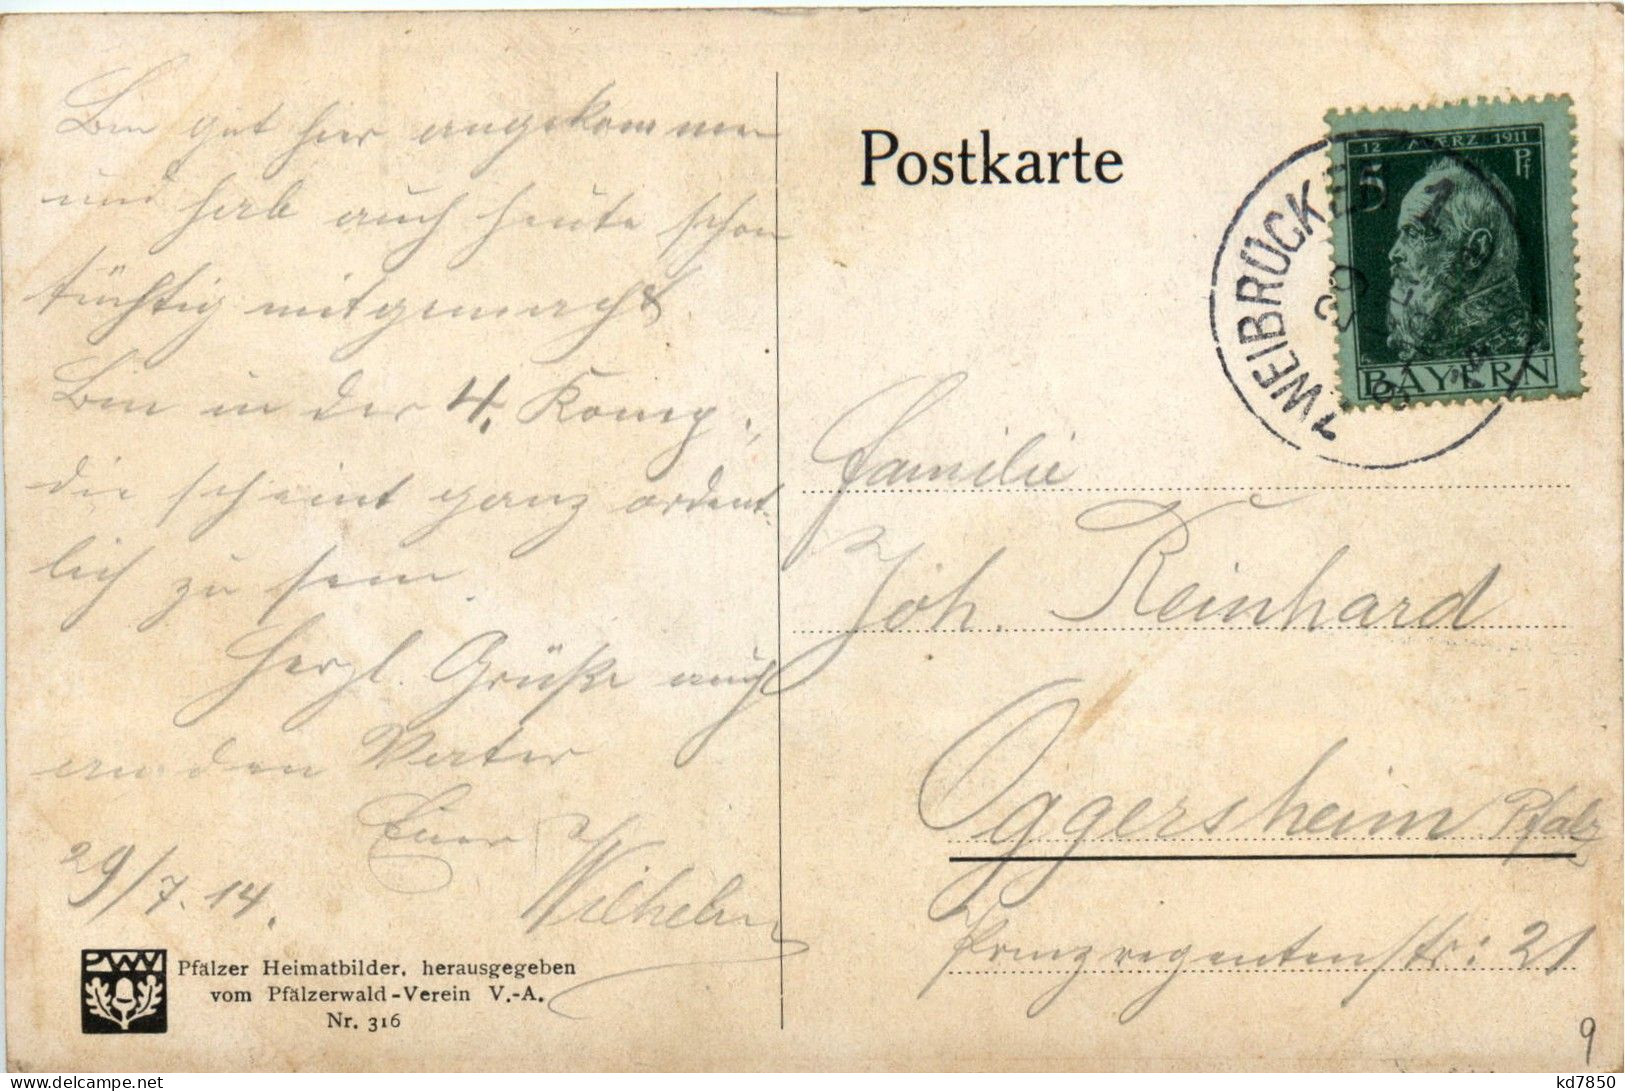 Bin gut hier angekommen
und hab auch heute schon
tüchtig mitgemacht.
Bin in der 4. Komp.,
die scheint ganz ordent-
lich zu sein.
Herzl. Grüße auch
an den Vater
Euer
Wilhelm
29/7. 14.
PWV
Pfälzer Heimatbilder, herausgegeben
vom Pfälzerwald-Verein V.-A.
Nr. 316
Postkarte
12 MÄRZ 1911
5 Pf
BAYERN
ZWEIBRÜCKEN 1
Familie
Joh. Reinhard
Oggersheim Pfalz
Prinzregentenstr: 21
9
kd7850